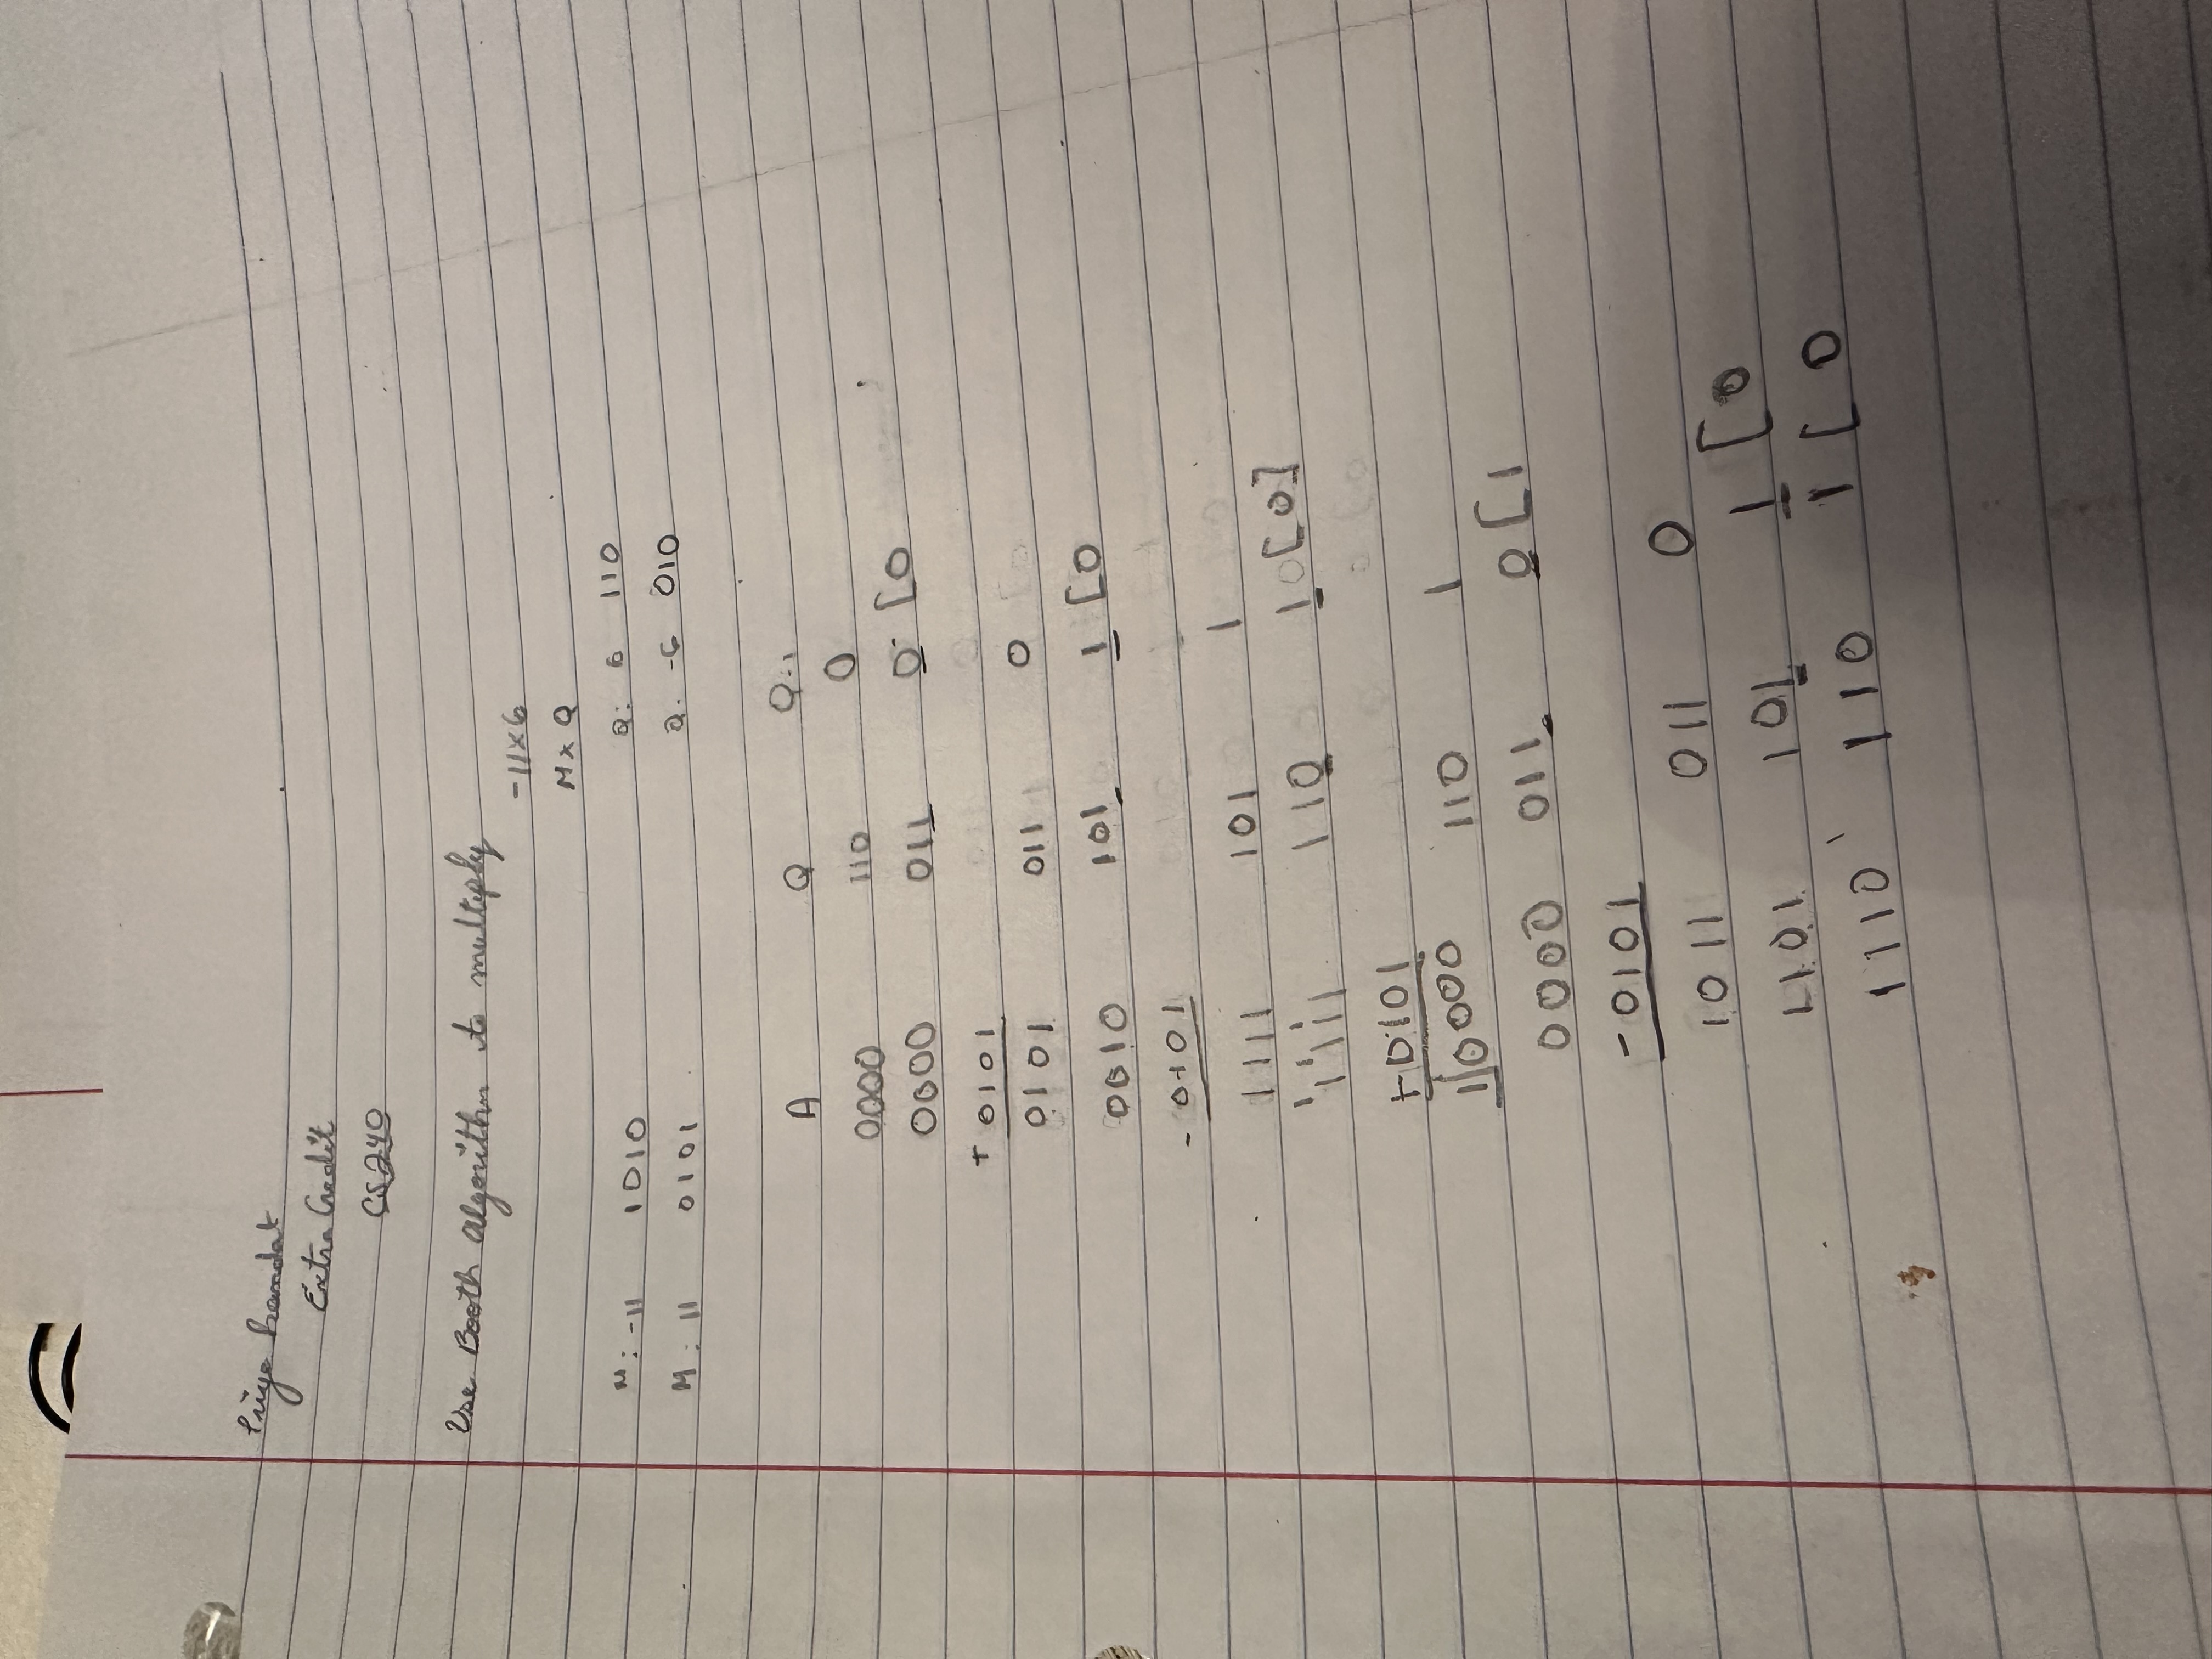 Extra Credit
CS240
Use Booth algorithm to multiply
-11x6
M x Q
M: -11 1010 Q: 6 110
M: 11 0101 Q: -6 010
A Q Q-1
0000 110 0
0000 011 0 [0
+ 0101
0101 011 0
0010 101 1 [0
- 0101
1111 101 1
1111 110 10[0]
+ 0101
10000 110 1
0000 011 0 [1
- 0101
1011 011 0
1101 101 1 [0
1110 110 1 [0